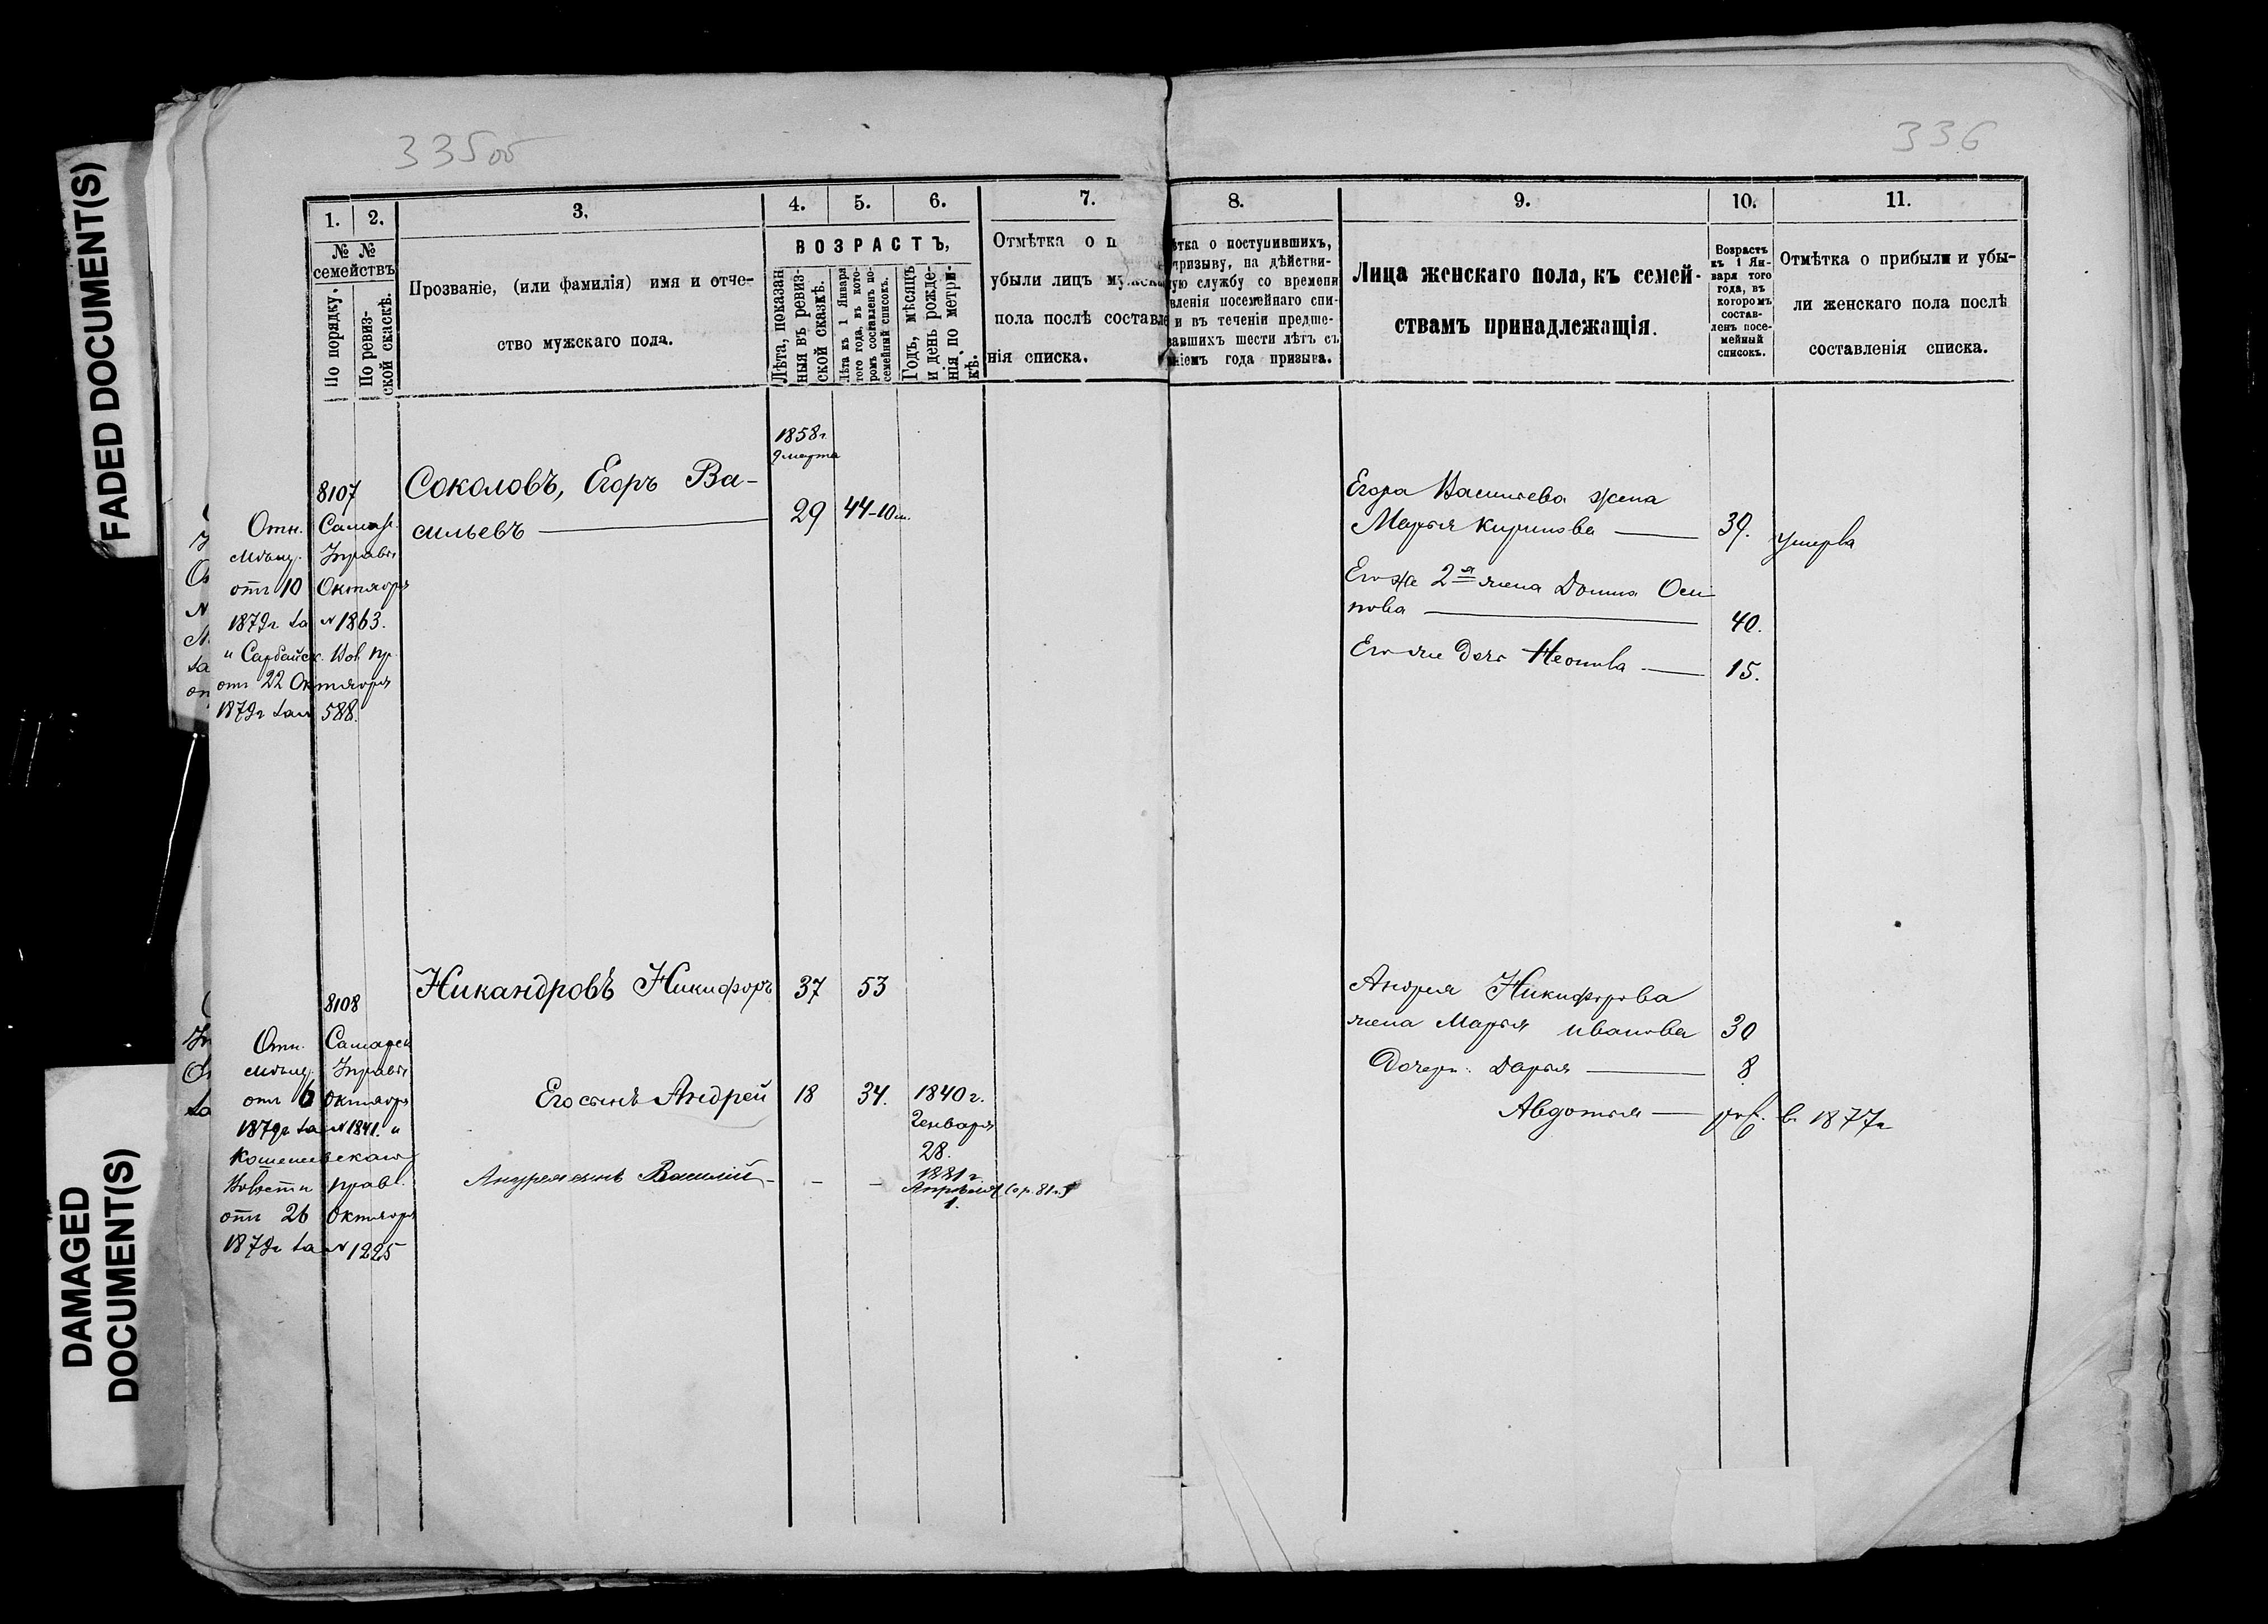 FADED DOCUMENT(S)
DAMAGED
DOCUMENT(S)
335об
336
1.
2.
3.
4.
5.
6.
7.
8.
9.
10.
11.
№ №
семействъ
По порядку.
По ревиз-
ской скаскѣ.
Прозваніе, (или фамилія) имя и отче-
ство мужскаго пола.
ВОЗРАСТЪ,
Лѣта, показан
ныя въ ревиз-
ской сказкѣ.
Лѣта къ 1 Января
того года, въ кото-
ромъ составленъ по-
семейный списокъ.
Годъ, мѣсяцъ
и день рожде-
нія, по метри-
кѣ.
Отмѣтка о п
убыли лицъ мужска
пола послѣ составле
нія списка.
ѣтка о поступившихъ,
призыву, на дѣйстви-
ую службу со времени
вленія посемейнаго спи-
и въ теченіи предше-
вавшихъ шести лѣтъ съ
ніемъ года призыва.
Лица женскаго пола, къ семей-
ствамъ принадлежащія.
Возрастъ
къ 1 Ян-
варя того
года, въ
которомъ
состав-
ленъ посе-
мейный
списокъ.
Отмѣтка о прибыли и убы-
ли женскаго пола послѣ
составленія списка.
8107
Отн. Самар.
Мѣщ. Управы
отъ 10 Октября
1879г за №1863.
и Сарбайск. Вол. пр.
отъ 22 Октября
1879г за № 588.
Соколовъ, Егоръ Ва-
сильевъ
1858г
9 марта
29
44-10м.
Егора Васильева жена
Марья Кирилова 39. умерла
Его же 2я жена Домна Оси
пова 40.
Его же дочь Неонила 15.
8108
Отн. Самарск
мѣщ. Управы
отъ 6 Октября
1879г за №1841. и
Волости правл.
отъ 26 Октября
1879г за №1225
Никандровъ Никифоръ 37 53
Его сынъ Андрей 18 34. 1840г.
Генваря
28.
Андрея сынъ Василій - - - 1881г.
Апрѣля
1.
Андрея Никифорова
жена Марья Иванова 30
Дочери: Дарья 8
Авдотья — род. в 1877г